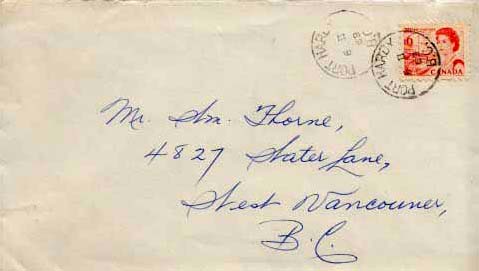 PORT HARDY B.C.
PORT HARDY B.C.
6
CANADA
Mr. Wm. Thorne,
4827 Water Lane,
West Vancouver,
B.C.